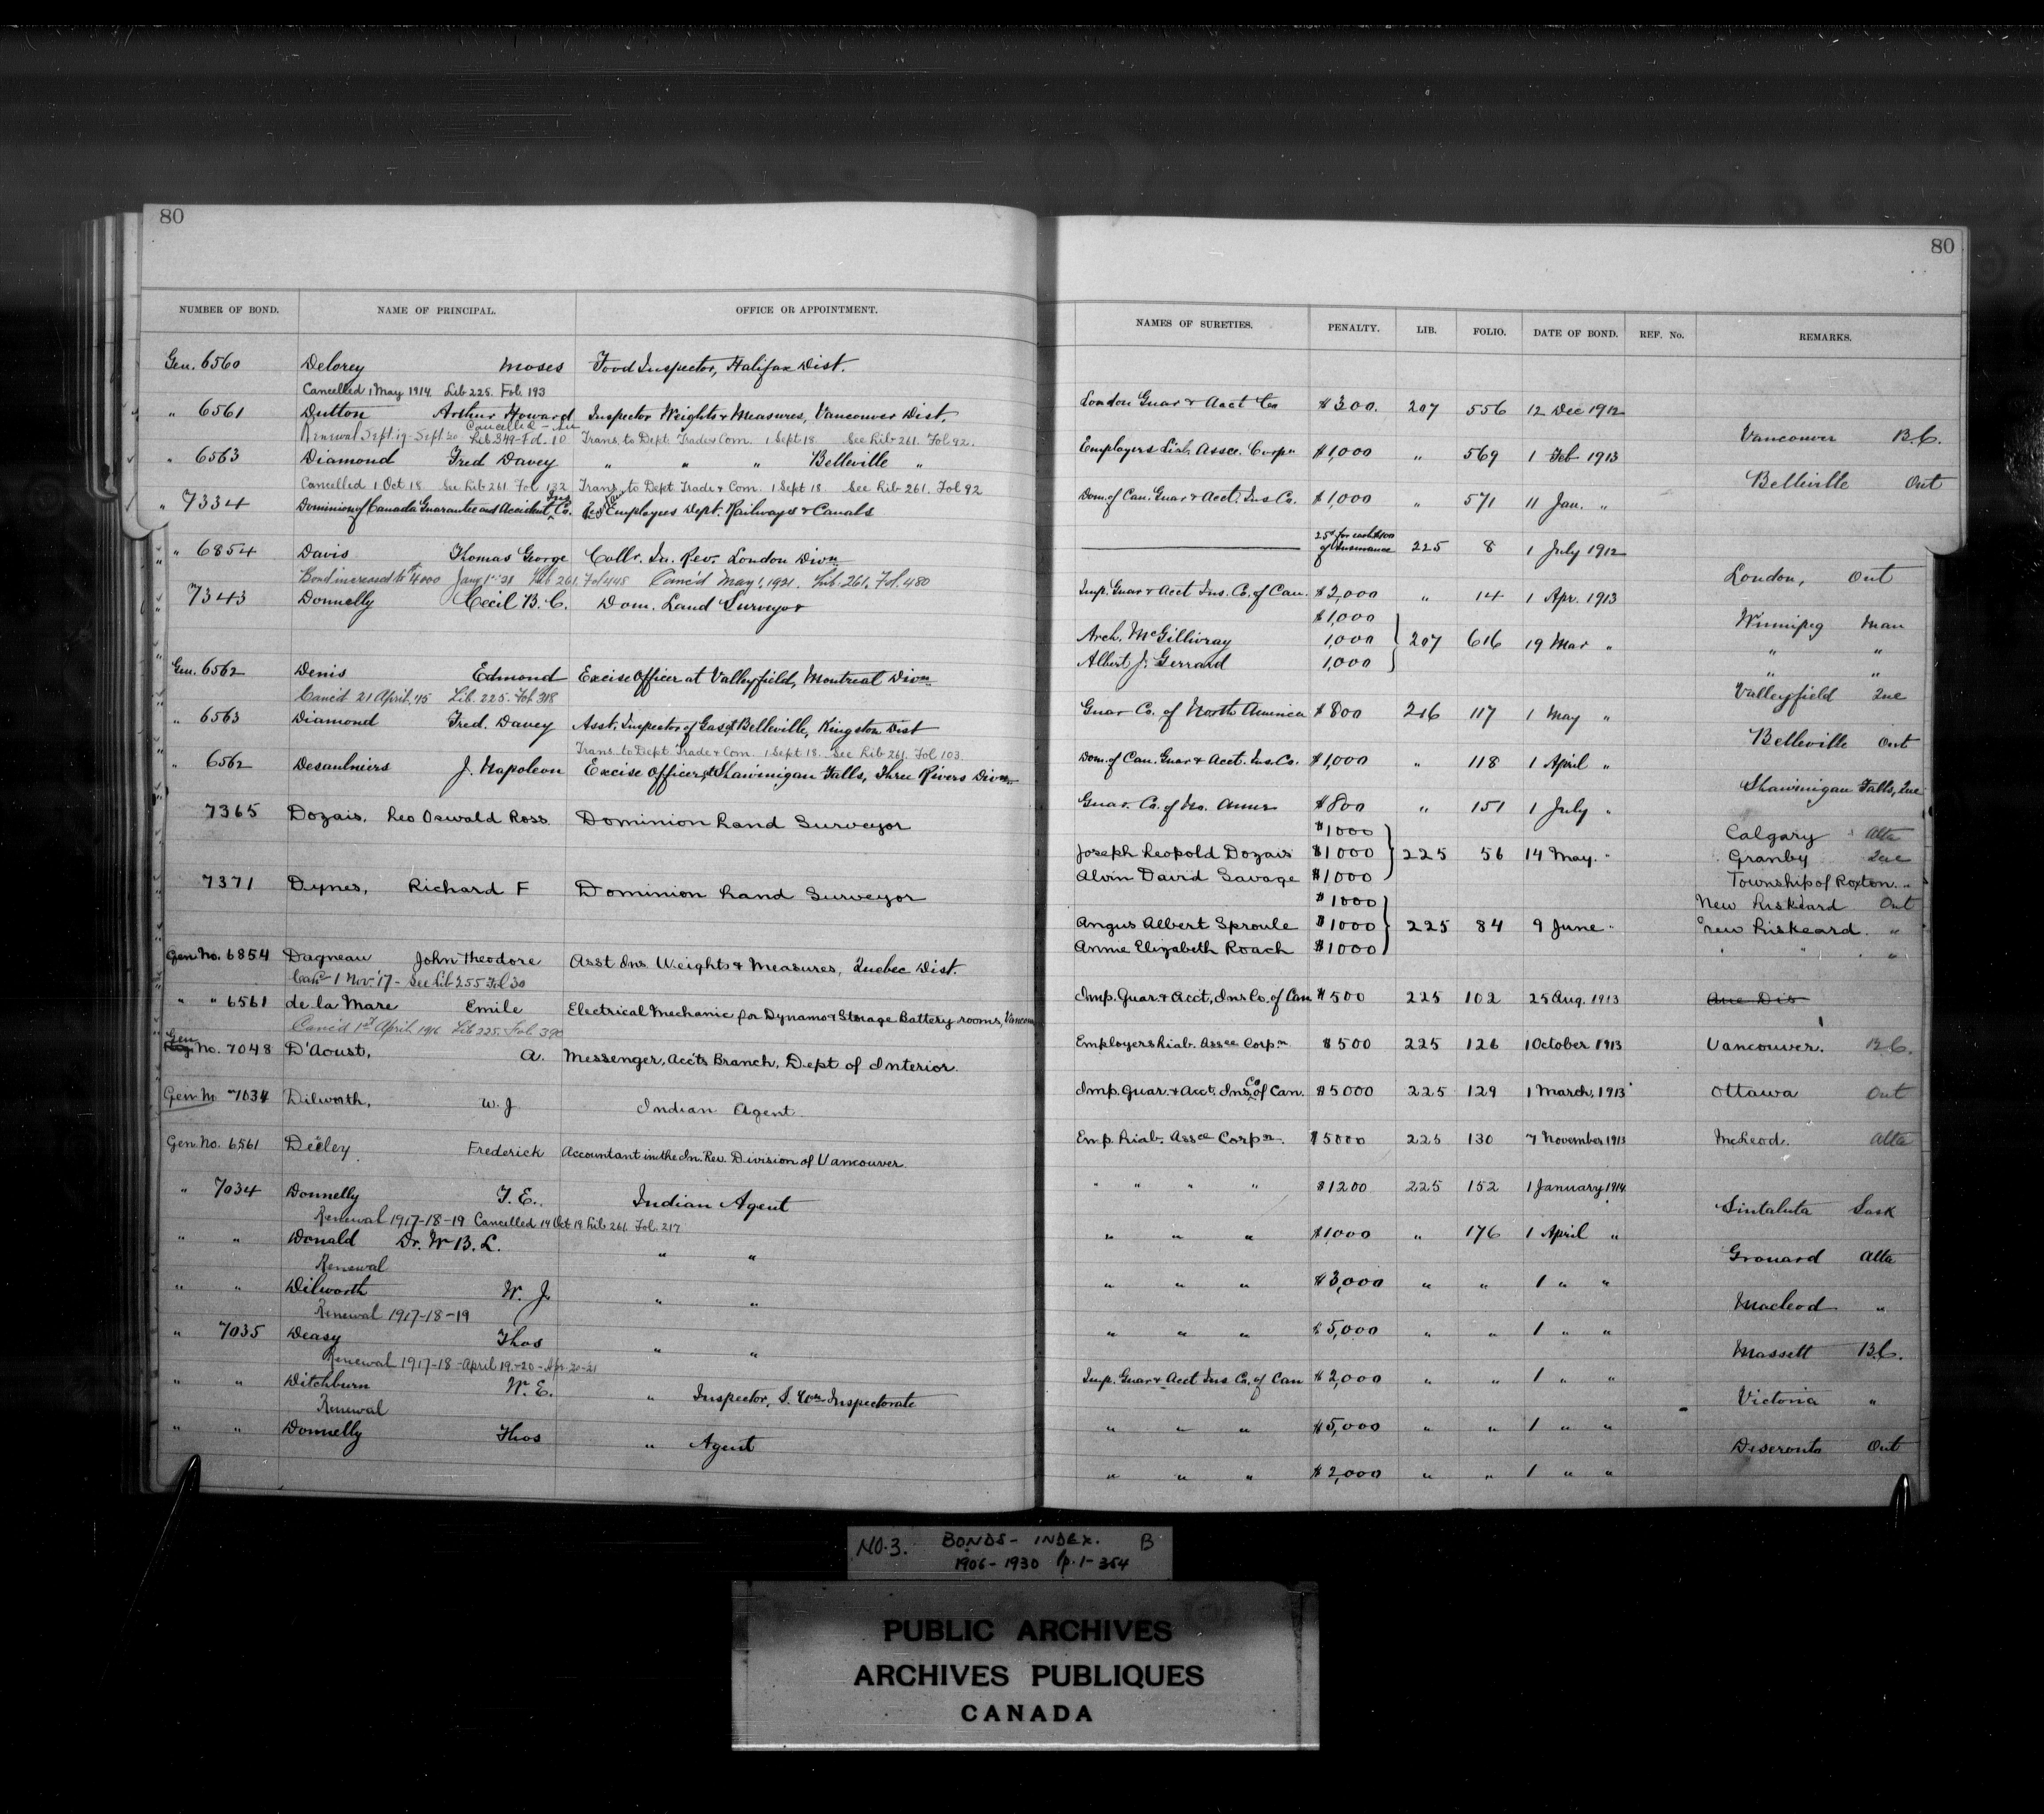 80
NUMBER OF BOND. NAME OF PRINCIPAL. OFFICE OR APPOINTMENT.
Gen. 6560 Delorey Moses Food Inspector, Halifax Dist.
Cancelled 1 May 1914. Lib 225. Fol. 193
" 6561 Dutton Arthur Howard Inspector Weights & Measures, Vancouver Dist.
Renewal Sept. 19 - Sept. 20 Cancelled Lib 349 - Fol. 10 Trans. to Dept Trade & Com. 1 Sept 18 See Lib 261. Fol 92.
" 6563 Diamond Fred Davey " " " Belleville "
Cancelled 1 Oct 18 See Lib 261 Fol 132 Trans. to Dept. Trade & Com. 1 Sept 18 See Lib 261. Fol 92
" 7334 Dominion of Canada Guarantee and Accident Ins Co. Employees Dept. Railways & Canals
" 6854 Davis Thomas George Collr. In. Rev. London Divn
Bond increased to $4000 Jany 1st 21 Lib 261. Fol 448 Canc'd May 1, 1921. Lib. 261, Fol. 480
7343 Donnelly Cecil B. C. Dom. Land Surveyor
Gen. 6562 Denis Edmond Excise Officer at Valleyfield, Montreal Divn.
Canc'd 21 April, 15 Lib. 225. Fol 318
" 6563 Diamond Fred. Davey Asst. Inspector of Gas, at Belleville, Kingston Dist
Trans. to Dept. Trade & Com. 1 Sept 18. See Lib 261. Fol 103.
" 6562 Desaulniers J. Napoleon Excise Officer, at Shawinigan Falls, Three Rivers Divn.
7365 Dozais, Leo Oswald Ross Dominion Land Surveyor
7371 Dynes, Richard F Dominion Land Surveyor
Gen No. 6854 Dagneau John Theodore Asst Ins. Weights & Measures, Quebec Dist.
Canc 1 Nov. '17 - See Lib 255 Fol 30
" " 6561 de la Mare Emile Electrical Mechanic for Dynamo & Storage Battery rooms, Vancou
Canc'd 1st April 1916 Lib 225. Fol. 390
Gen No. 7048 D'Aoust, A. Messenger, Acc'ts Branch, Dept of Interior.
Gen No 7034 Dilworth, W. J Indian Agent.
Gen. No. 6561 Deeley Frederick Accountant in the In. Rev. Division of Vancouver.
" 7034 Donnelly T. E. Indian Agent
Renewal 1917-18-19 Cancelled 14 Oct 19 Lib 261. Fol. 217
" " Donald Dr. W. B. L. " "
Renewal
" " Dilworth W. J. " "
Renewal 1917-18-19
" 7035 Deasy Thos " "
Renewal 1917-18 - April 19-20 - Apr. 20-21
" " Ditchburn W. E. " Inspector, S. Wn Inspectorate
Renewal
" " Donnelly Thos " Agent
80
NAMES OF SURETIES. PENALTY. LIB. FOLIO. DATE OF BOND. REF. No. REMARKS.
London Guar & Acct Co $300. 207 556 12 Dec 1912
Vancouver B.C.
Employers Liab. Assce. Corpn $1,000 " 569 1 Feb 1913
Belleville Ont
Dom. of Can. Guar & Acct. Ins Co. $1,000 " 571 11 Jan. "
25¢ for each $100 of Insurance 225 8 1 July 1912
London, Ont
Imp. Guar & Acct Ins. Co. of Can. $2,000 " 14 1 Apr. 1913
$1,000 Winnipeg Man
Arch. McGillivray 1,000 207 616 19 Mar " " "
Albert J. Gerrard 1,000 " "
Valleyfield Que
Guar Co. of North America $800 216 117 1 May "
Belleville Ont
Dom. of Can. Guar & Acct. Ins Co. $1,000 " 118 1 April "
Shawinigan Falls, Que
Guar. Co. of No. Amer $800 " 151 1 July "
$1000 Calgary Alta
Joseph Leopold Dozais $1000 225 56 14 May. " Granby Que
Alvin David Savage $1000 Township of Roxton. "
$1000 New Liskeard Ont
Angus Albert Sproule $1000 225 84 9 June " New Liskeard. "
Annie Elizabeth Roach $1000 " " "
Imp. Guar. & Acct, Ins Co. of Can $500 225 102 25 Aug. 1913 Que Dis
Employers Liab. Assce Corpn $500 225 126 1 October 1913 Vancouver. B.C.
Imp. Guar. & Acct. Ins. Co of Can. $5000 225 129 1 March, 1913 Ottawa Ont
Emp. Liab. Assce Corpn. $5000 225 130 7 November 1913 McLeod. Alta
" " " " $1200 225 152 1 January 1914
Sintaluta Sask
" " " $1000 " 176 1 April "
Grouard Alta
" " " $3,000 " " 1 " "
Macleod "
" " " $5,000 " " 1 " "
Massett B.C.
Imp. Guar & Acct Ins Co. of Can $2,000 " " 1 " "
Victoria "
" " " $5,000 " " 1 " "
Deseronto Ont
" " " $2,000 " " 1 " "
NO. 3. BONDS - INDEX. B
1906 - 1930 p. 1 - 354
PUBLIC ARCHIVES
ARCHIVES PUBLIQUES
CANADA